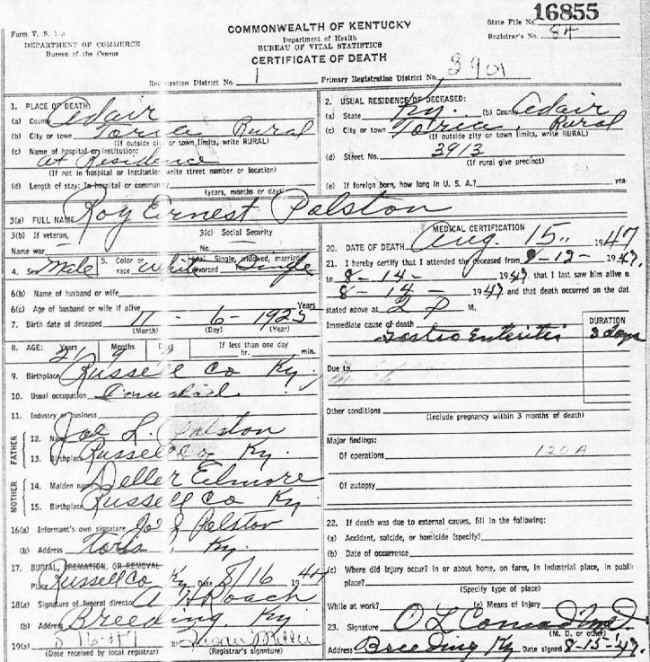 Form V. S.
DEPARTMENT OF COMMERCE
Bureau of the Census
COMMONWEALTH OF KENTUCKY
Department of Health
BUREAU OF VITAL STATISTICS
CERTIFICATE OF DEATH
State File No. 16855
Registrar's No. 84
Registration District No. 1
Primary Registration District No. 3901
1. PLACE OF DEATH:
(a) County Adair
(b) City or town Rural
(If outside city or town limits, write RURAL)
(c) Name of hospital or institution:
at Residence
(If not in hospital or institution write street number or location)
(d) Length of stay: In hospital or community
(years, months or days)
2. USUAL RESIDENCE OF DECEASED:
(a) State Ky. (b) County Adair
(c) City or town Rural
(If outside city or town limits, write RURAL)
(d) Street No. 3913
(If rural give precinct)
(e) If foreign born, how long in U. S. A.? yea
3(a) FULL NAME Roy Ernest Palston
3(b) If veteran,
Name war
3(c) Social Security
No.
4. Sex Male 5. Color or race White 6(a) Single, widowed, married, divorced Single
6(b) Name of husband or wife
6(c) Age of husband or wife if alive Years
7. Birth date of deceased 11 - 6 - 1925
(Month) (Day) (Year)
8. AGE: Years Months Days If less than one day
21 9 9 hr. min.
9. Birthplace Russell Co Ky.
10. Usual occupation
11. Industry or business
FATHER
12. Name Joe L. Palston
13. Birthplace Russell Co Ky.
MOTHER
14. Maiden name Deller Elmore
15. Birthplace Russell Co Ky
16(a) Informant's own signature Joe L Palston
(b) Address Ky.
17. BURIAL, CREMATION, OR REMOVAL
Place Russell Co Ky Date 8/16 1947
18(a) Signature of funeral director Roach
(b) Address Breeding, Ky
19(a)
(Date received by local registrar) (Registrar's signature)
MEDICAL CERTIFICATION
20. DATE OF DEATH Aug. 15, 1947
21. I hereby certify that I attended the deceased from 8-12- 1947,
to 8-14- 1947 that I last saw him alive o
8-14- 1947 and that death occurred on the dat
stated above at 2 P M.
DURATION
Immediate cause of death Gastro Enteritis 3 days
Due to
Other conditions
(Include pregnancy within 3 months of death)
Major findings:
Of operations 120A
Of autopsy
22. If death was due to external causes, fill in the following:
(a) Accident, suicide, or homicide (specify)
(b) Date of occurrence
(c) Where did injury occur? in or about home, on farm, in industrial place, in public
place?
(Specify type of place)
While at work? (e) Means of Injury
23. Signature O L Conrad M.D.
(M. D. or other)
Address Breeding Ky Date signed 8-15-47